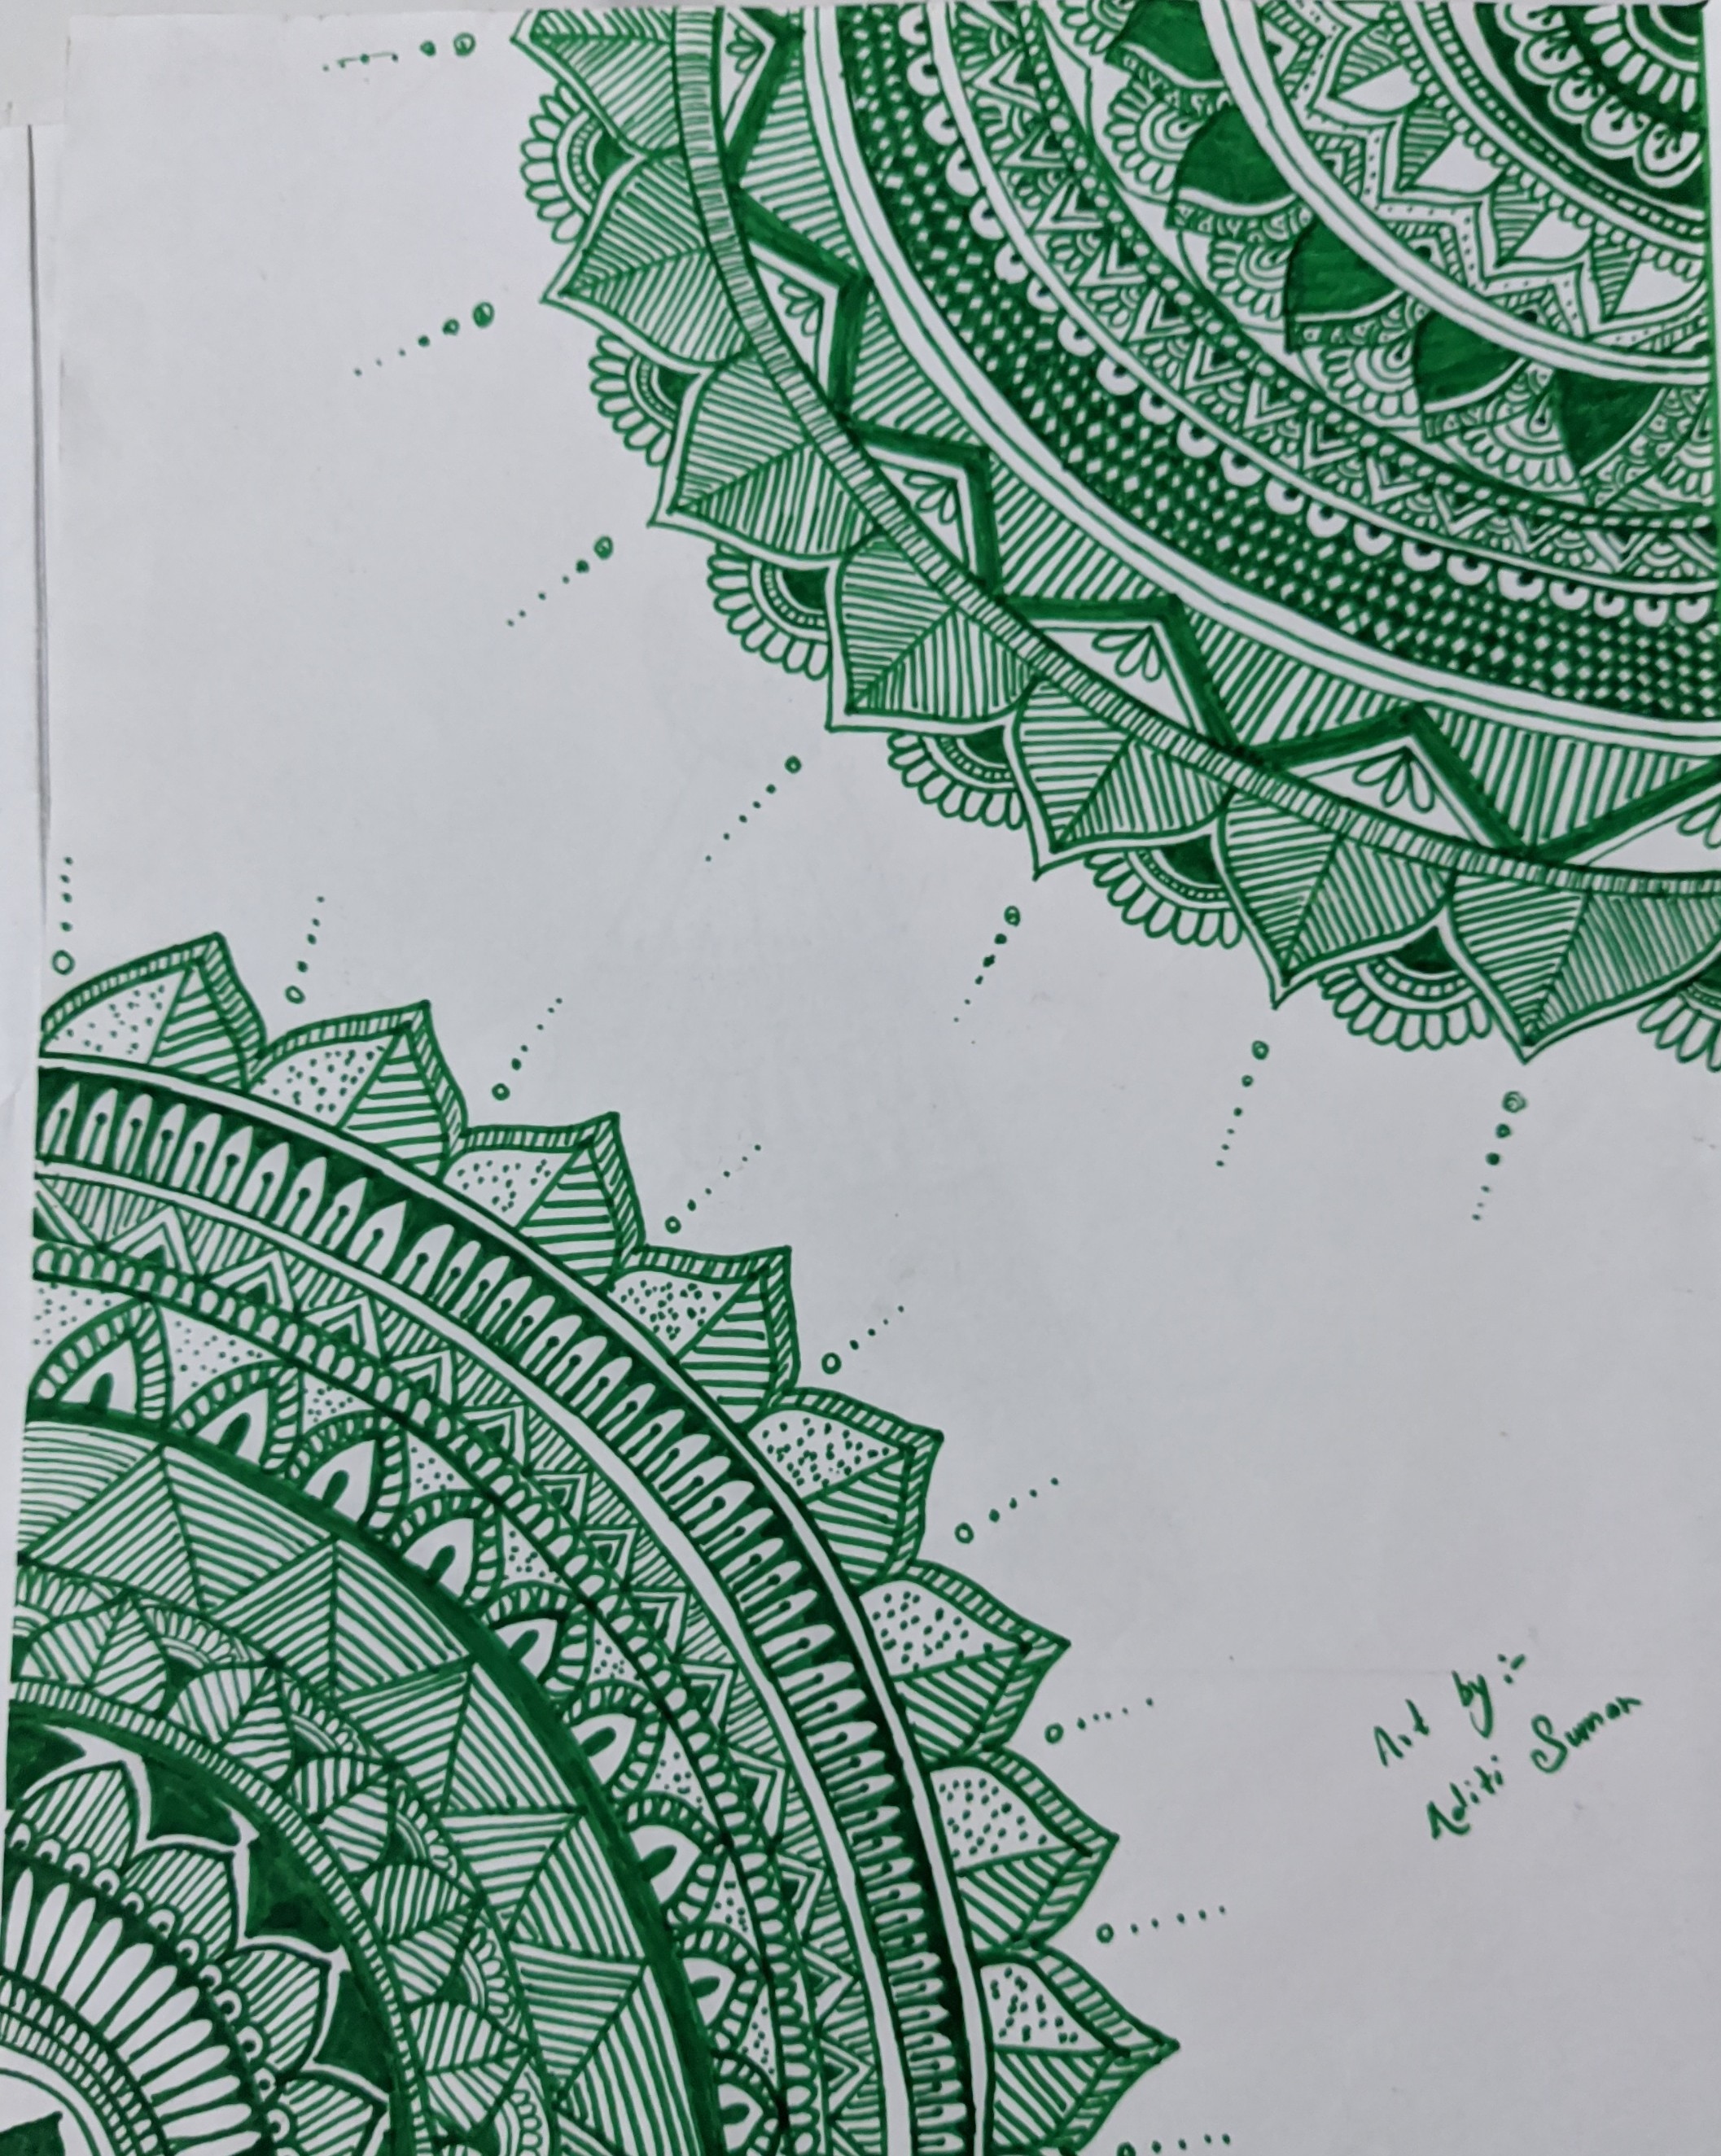 Art by :-
Aditi Suman